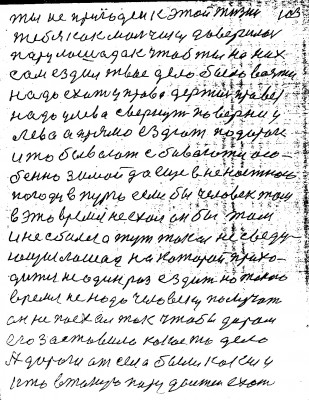 ты не приходен к этой жизни 103
тебя как мальчику доверили
пару лошадок чтоб ты на них
сам ездил твое дело было возжи
надо ехат управо держи праве
надо улева сверкнут поверни у
лева а прямо ездят по дороги
и то бывает сбиваются осо-
бенно зимой да еще в неностною
погоду в пургу если бы человек там
в это время не ехал он бы там
и не сбился тут такая не сведу
ющия лошад на которой прихо-
дится не один раз ездит но такое
время не надо человеку получат
он не поехал так чтобы даром
его заставило какое то дело
А дороги от села были какии у
ить в такую пору домой ехат